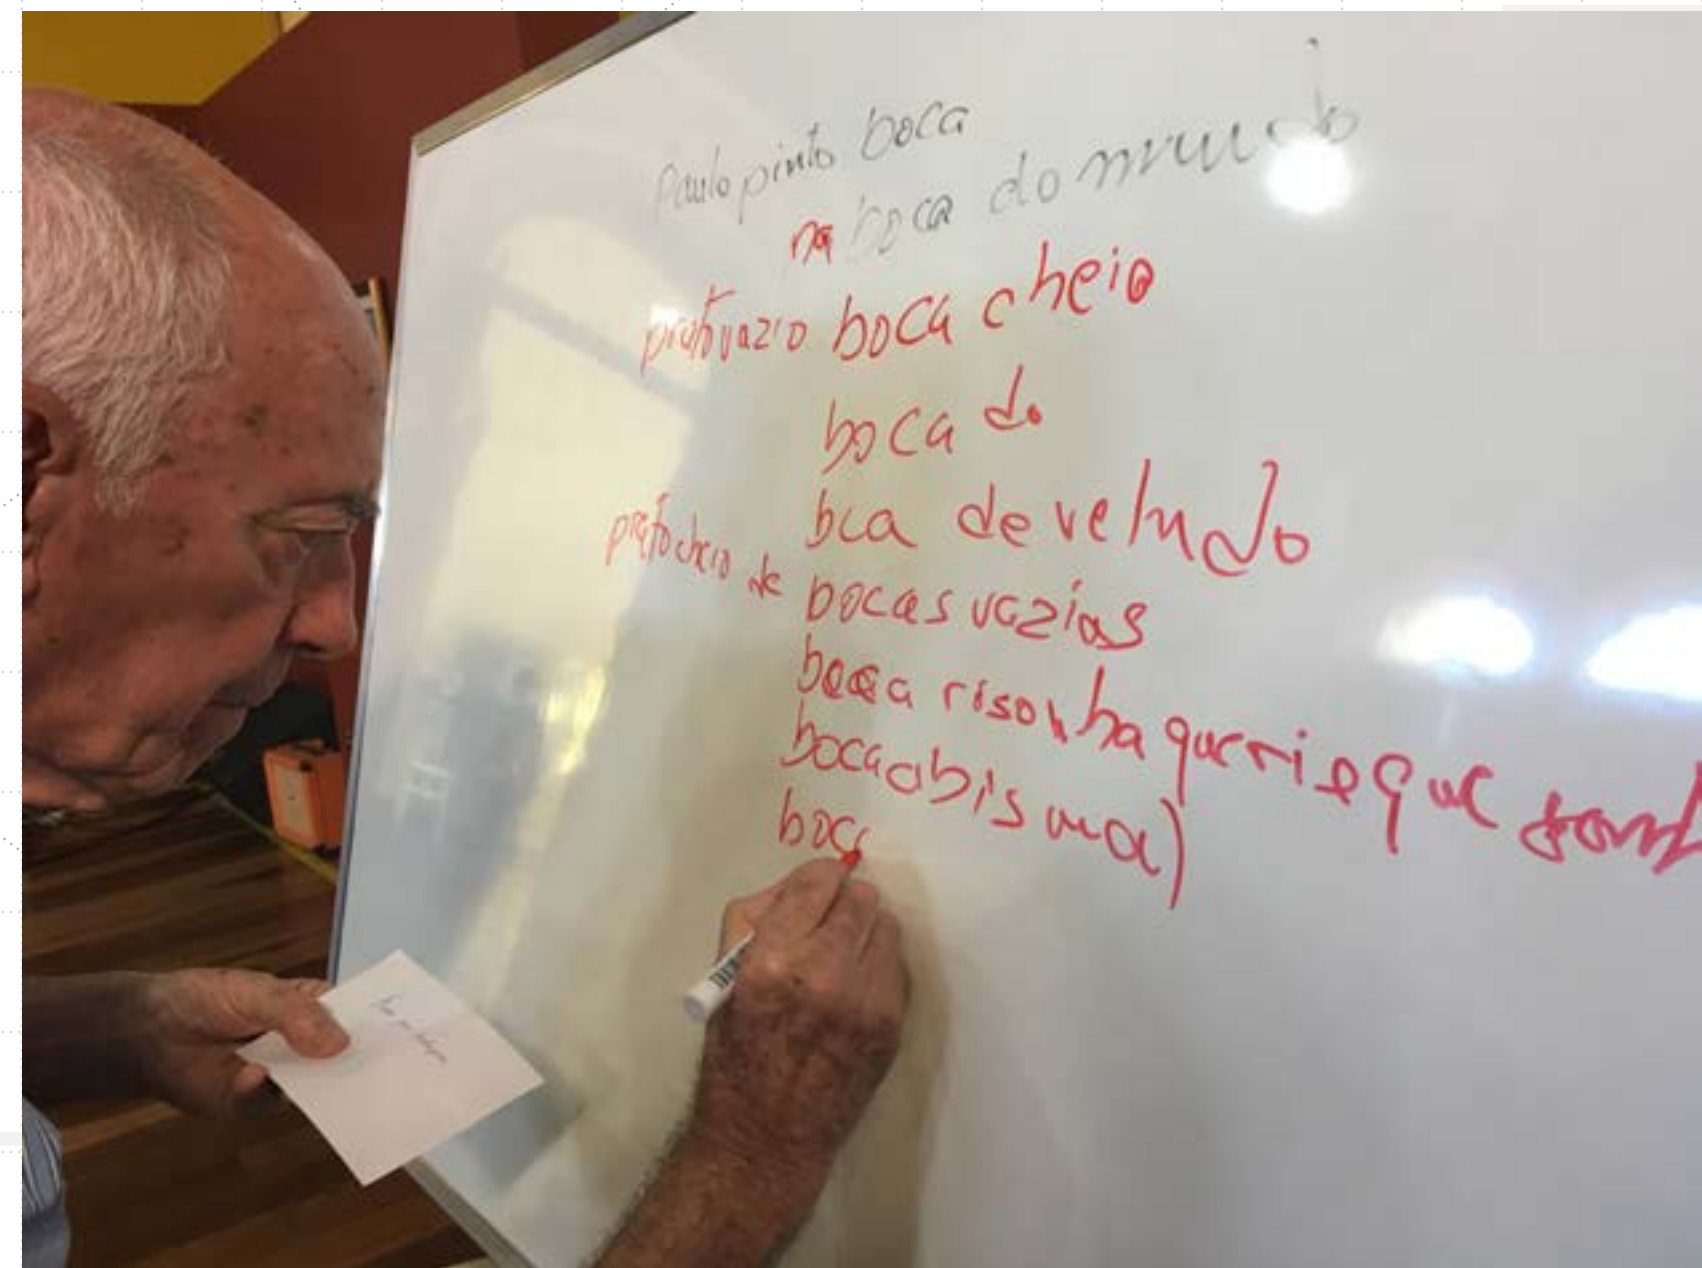 paulo pinto boca
na boca do mundo
prato vazio boca cheia
boca do
bca de veludo
prato cheio de bocas vazias
boca risonha que ri e que
boca abisma)
boca